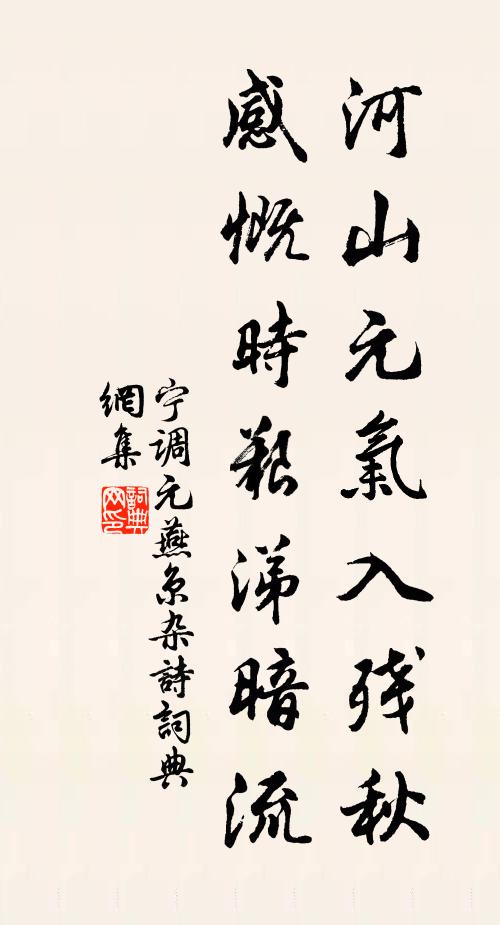 河山元氣入残秋
感慨時艱涕暗流
宁调元燕京杂詩詞典
網集
詞典网印